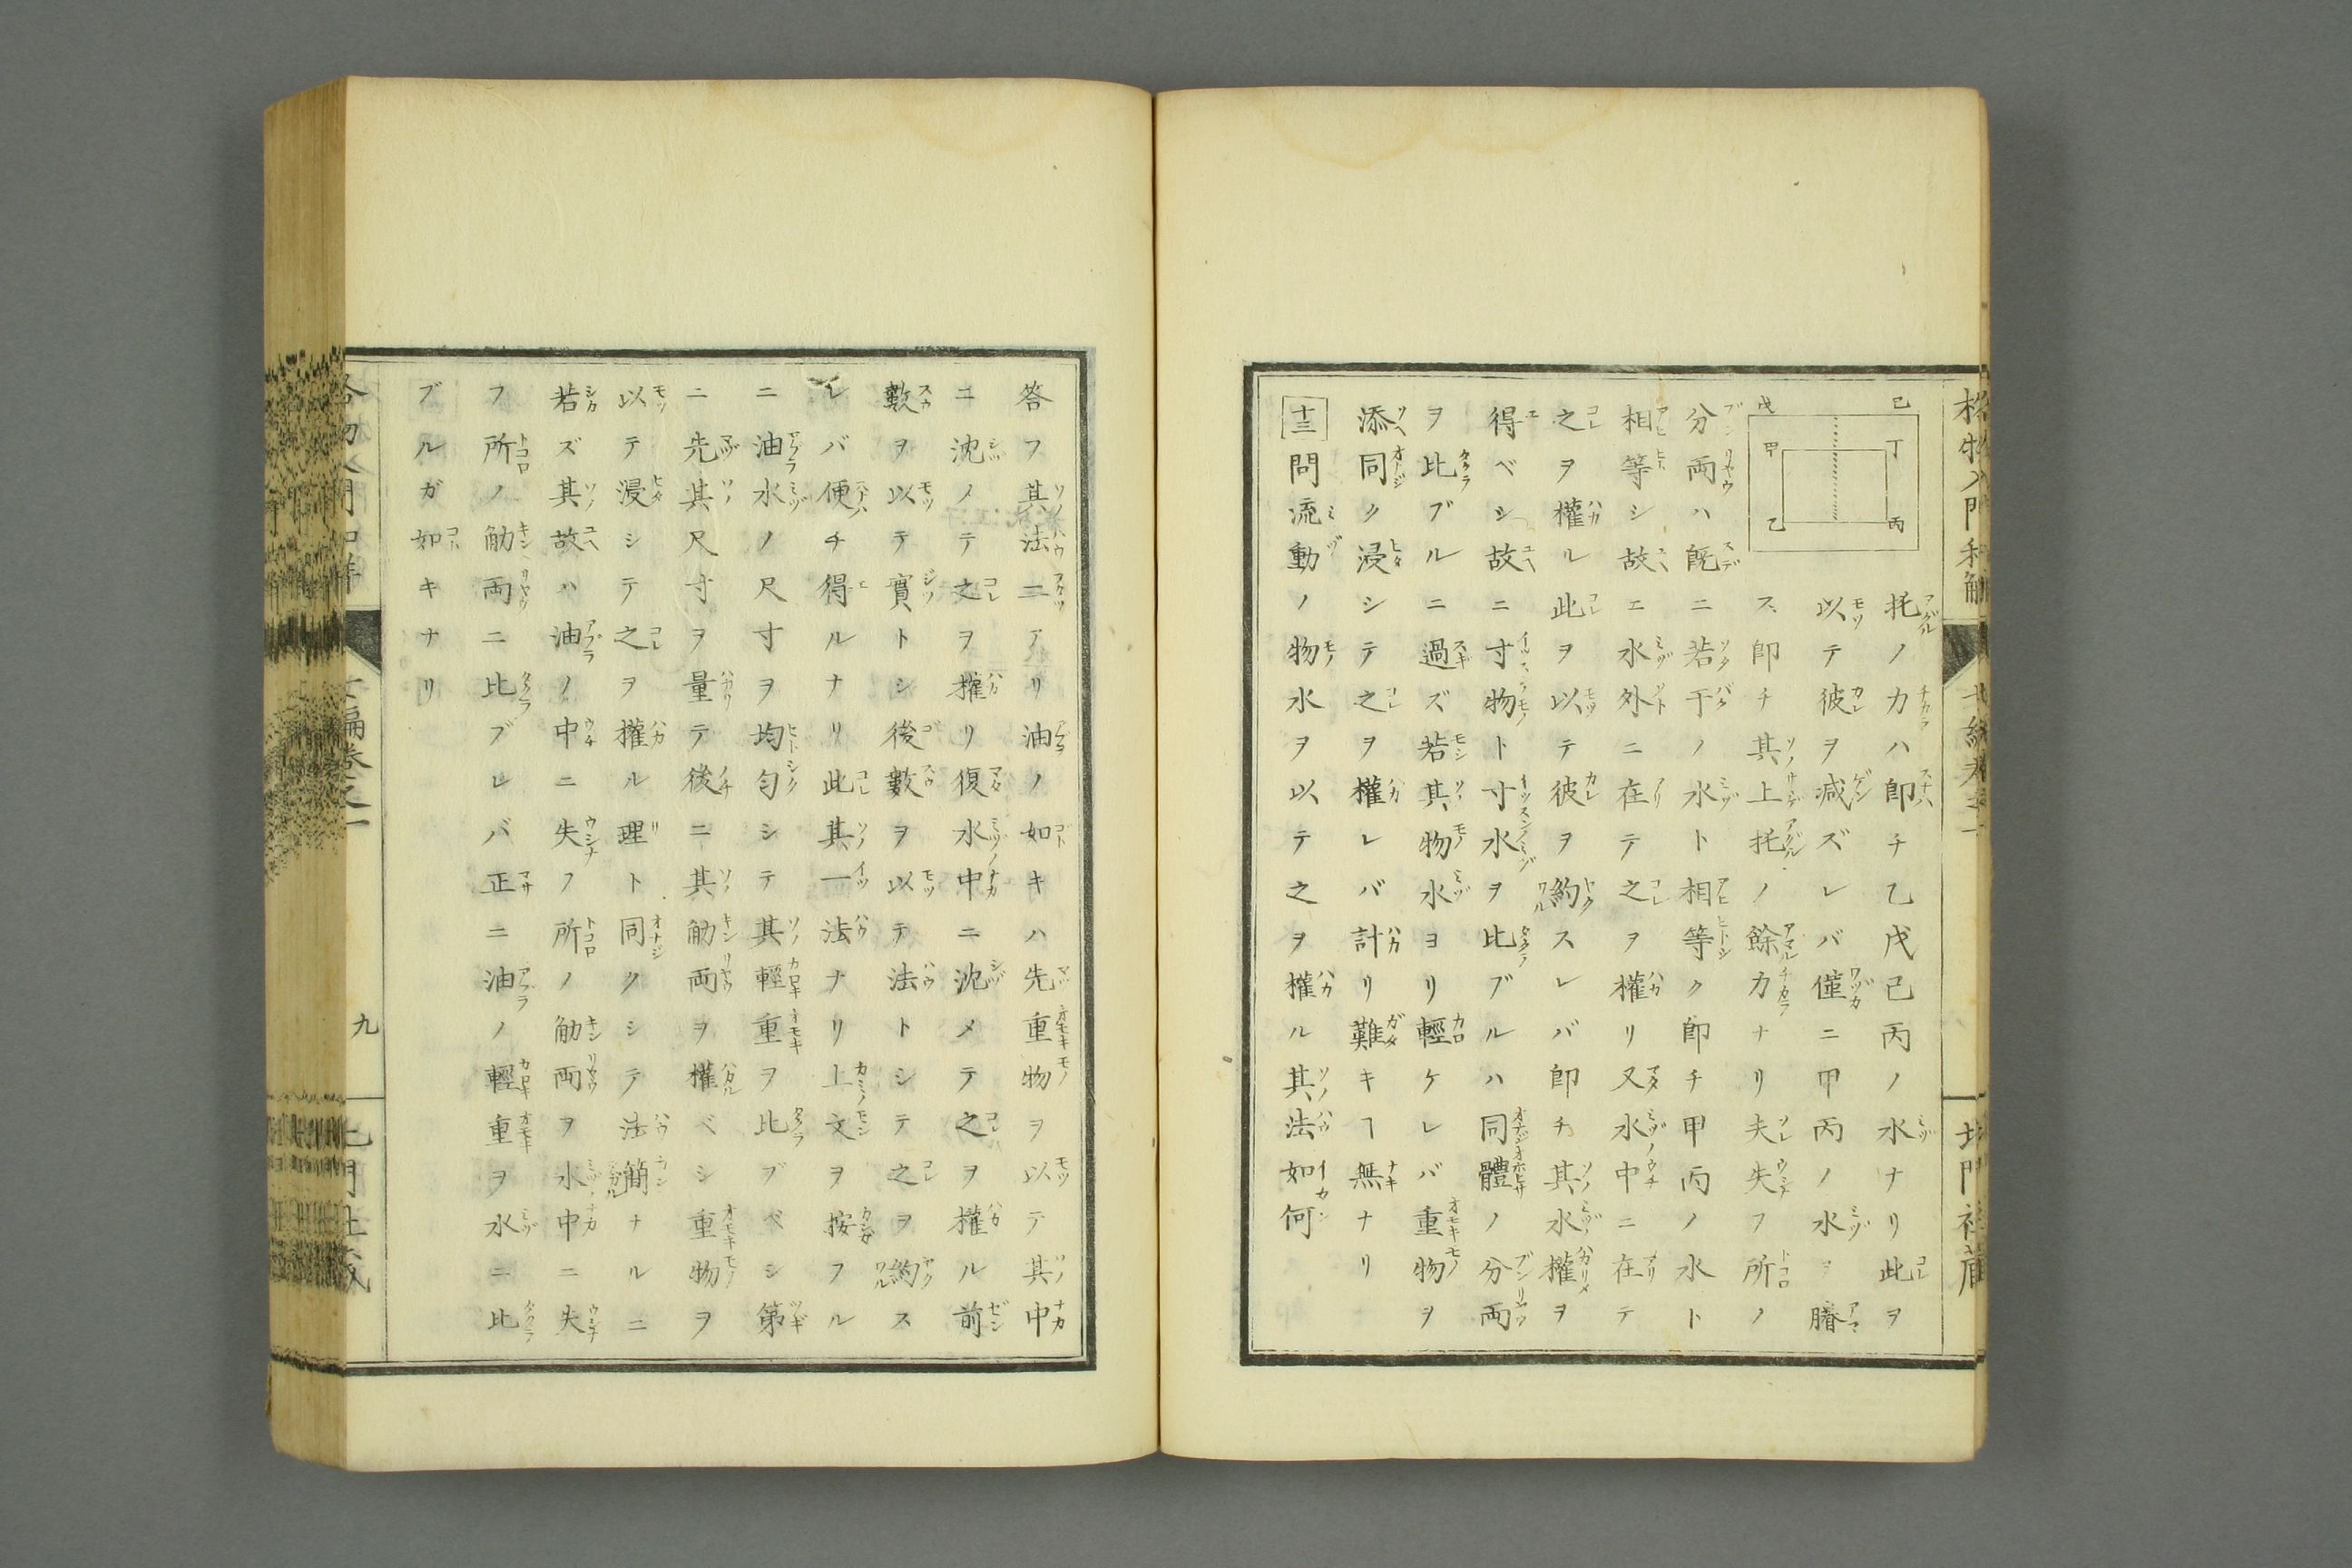 格物入門和解
北門社蔵
己
戊
丁
甲
丙
乙
托ノ力ハ即チ乙戊己丙ノ水ナリ此ヲ
以テ彼ヲ減ズレバ僅ニ甲丙ノ水ヲ賸
ス即チ其上托ノ餘力ナリ夫失フ所ノ
分両ハ既ニ若干ノ水ト相等ク即チ甲丙ノ水ト
相等シ故ニ水外ニ在テ之ヲ權リ又水中ニ在テ
之ヲ權ル此ヲ以テ彼ヲ約スレバ即チ其水權ヲ
得ベシ故ニ寸物ト寸水ヲ比ブルハ同體ノ分両
ヲ比ブルニ過ズ若其物水ヨリ輕ケレバ重物ヲ
添同ク浸シテ之ヲ權レバ計リ難キヿ無ナリ
十三問流動ノ物水ヲ以テ之ヲ權ル其法如何
答フ其法三アリ油ノ如キハ先重物ヲ以テ其中
ニ沈ノテ之ヲ權リ復水中ニ沈メテ之ヲ權ル前
數ヲ以テ實トシ後數ヲ以テ法トシテ之ヲ約ス
レバ便チ得ルナリ此其一法ナリ上文ヲ按フル
ニ油水ノ尺寸ヲ均匀シテ其輕重ヲ比ブベシ第
ニ先其尺寸ヲ量テ後ニ其觔両ヲ權ベシ重物ヲ
以テ浸シテ之ヲ權ル理ト同クシテ法簡ナルニ
若ズ其故ハ油ノ中ニ失フ所ノ觔両ヲ水中ニ失
フ所ノ觔両ニ比ブレバ正ニ油ノ輕重ヲ水ニ比
ブルガ如キナリ
九